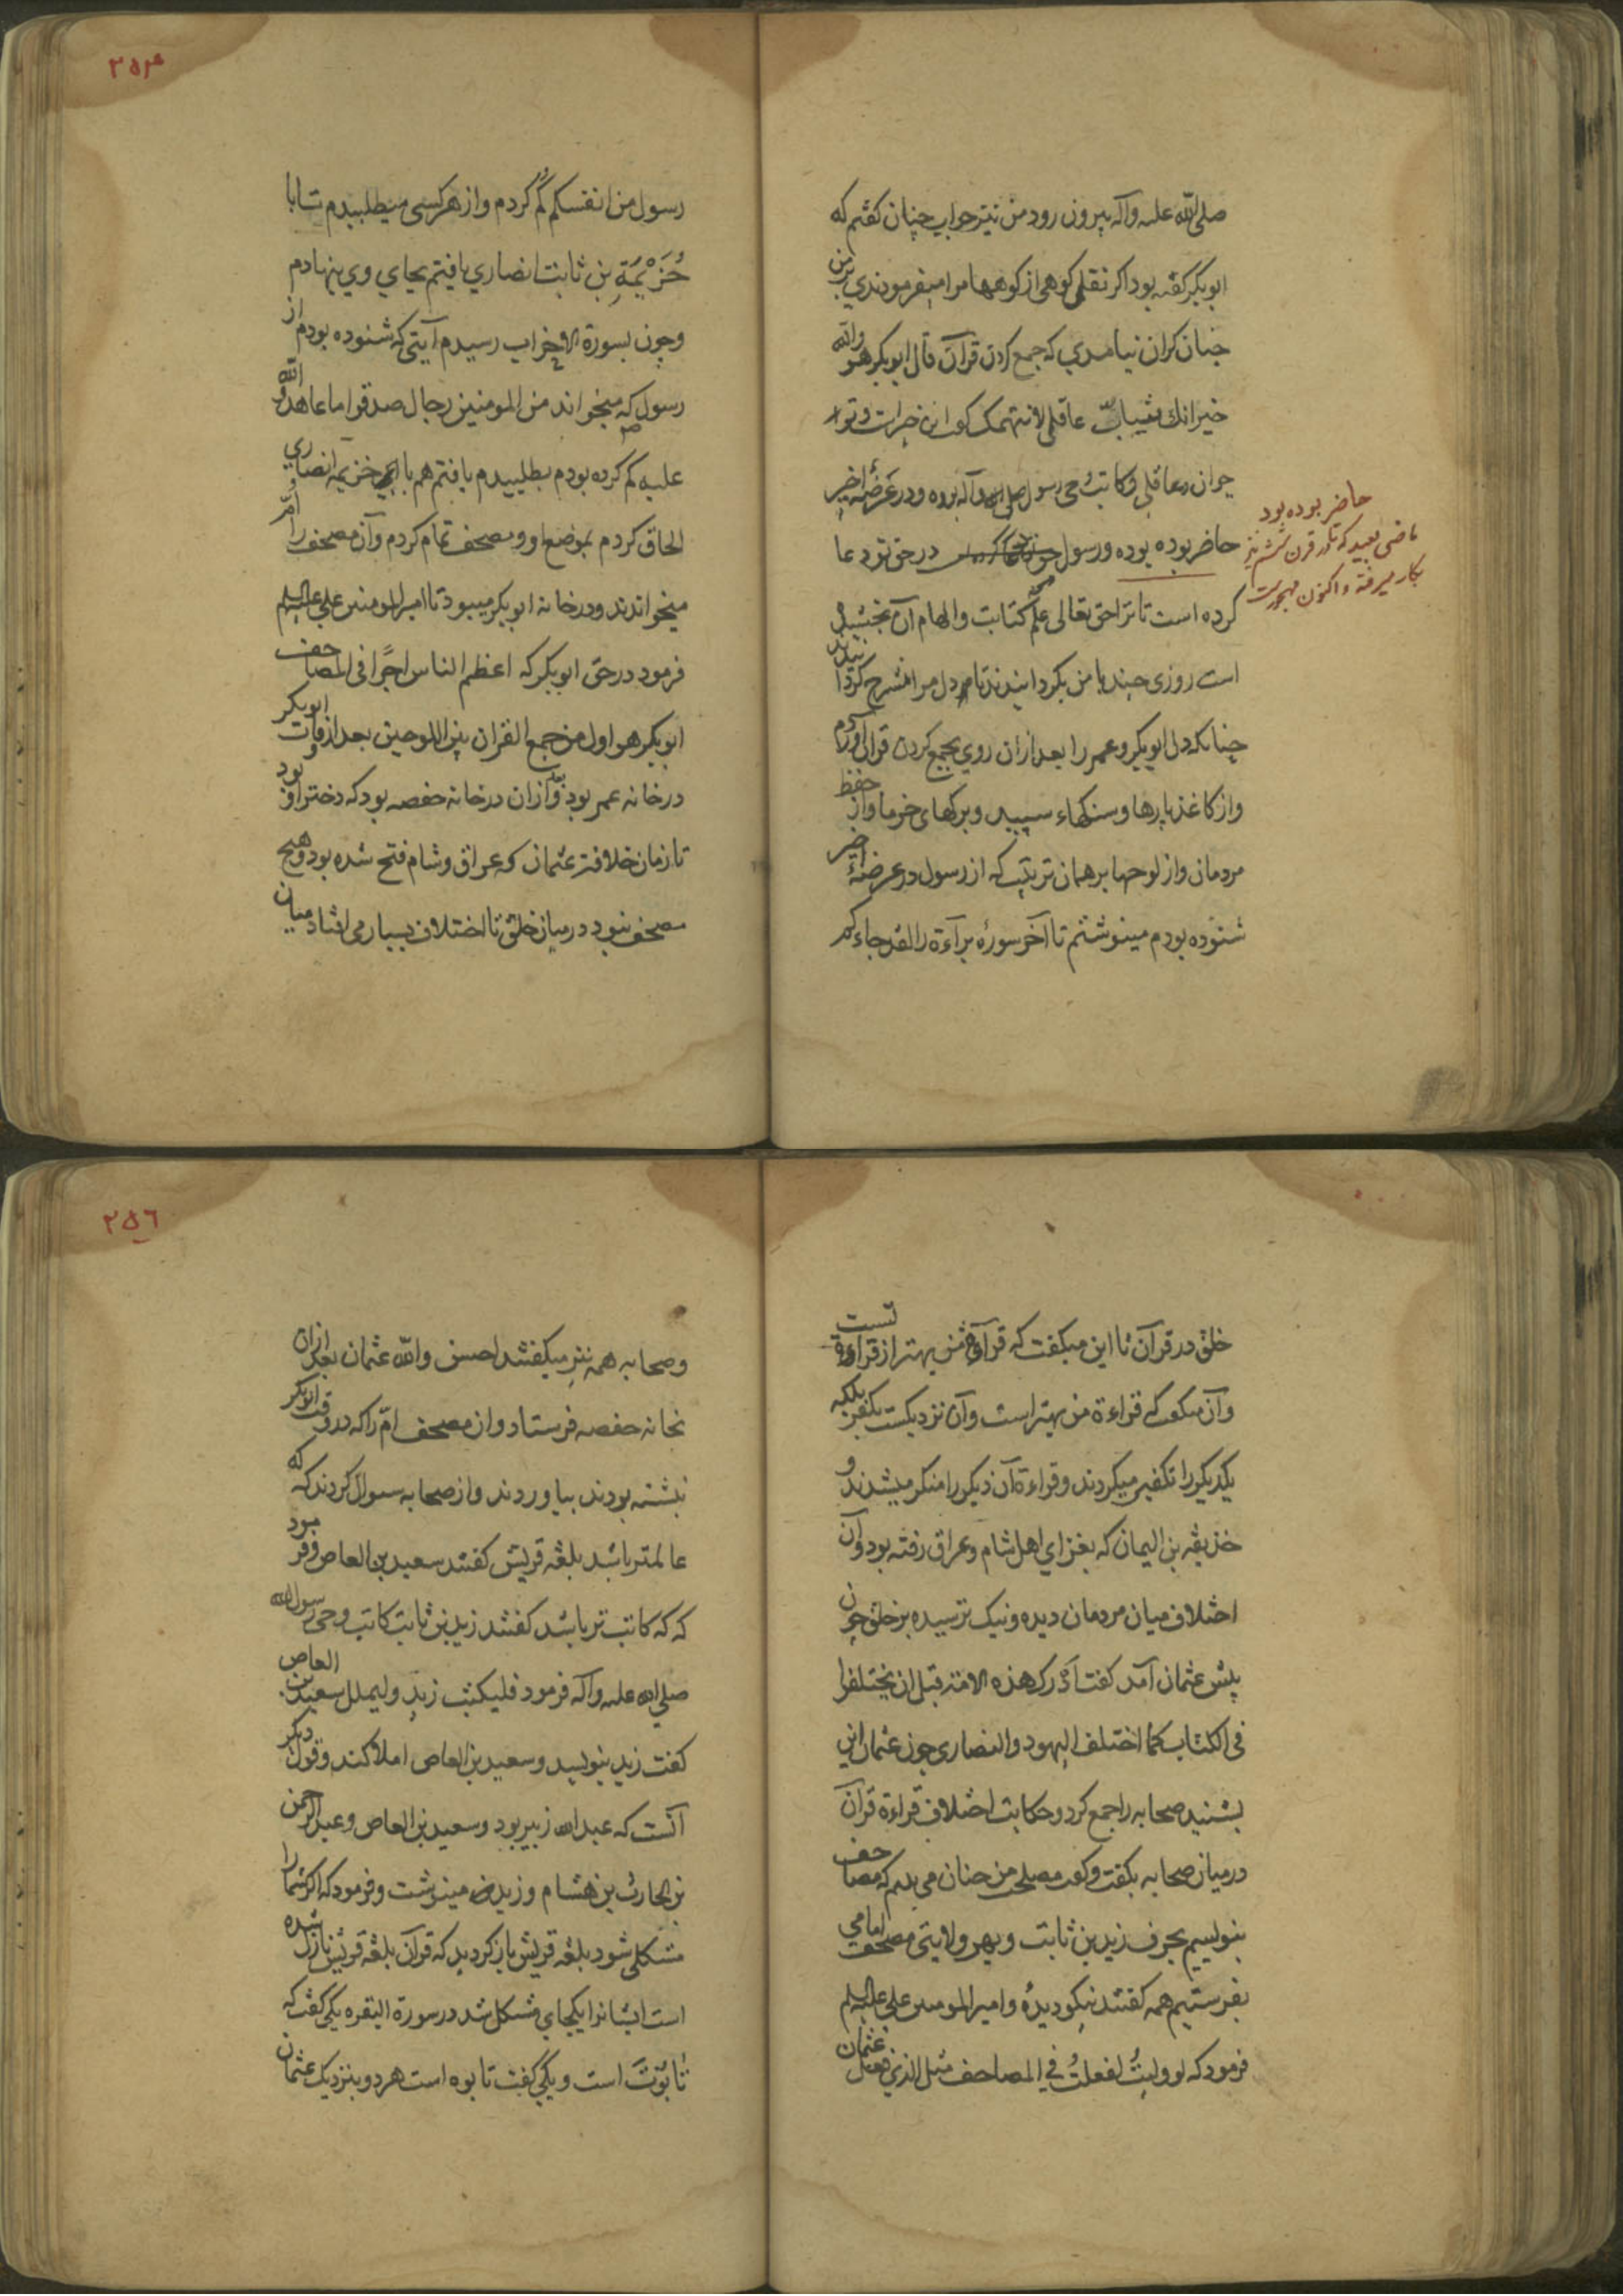 صلی الله علیه وآله بیرون رود من نیز جواب چنان گفتم که
ابوبکر گفته بود اگر نقل کوهی از کوهها مرا میفرمودندی بر من
چنان گران نیامدی که جمع کردن قرآن قال ابوبکر هو والله
خیر انك شابّ عاقل لا نتهمك گفت این خیر است و تو
جوان و عاقلی و کاتب وحی رسول صلی الله وآله بوده و در عرضهٔ اخیر
حاضر بوده بوده ورسول در حق تو دعا
کرده است تا ترا حق تعالی علم کتابت والهام آن بخشید
است روزی چند با من بگردانیدند تا دل مرا منشرح کرد
چنانکه دل ابوبکر وعمر را بعد ازان روی بجمع کردن قرآن آوردم
واز کاغذ پارها وسنگهاء سپید وبرگهای خرما واز حفظ
مردمان واز لوحها بر همان ترتیب که از رسول در عرضهٔ اخیر
شنوده بودم مینوشتم تا آخر سورهٔ برآءة را لقد جاءکم
حاضر بوده بود
ماضی بعید که تا در قرن ششم نیز
بکار میرفته و اکنون مهجور است
۲۵۴
رسول من انفسکم گم کردم واز هر کسی میطلبیدم تا با
خُزَیْمَةِ بن ثابت انصاری یافتم بجای وی بنهادم
وچون بسورة الاحزاب رسیدم آیتی که شنوده بودم از
رسول که میخواند من المومنین رجال صدقوا ما عاهدوا الله
علیه گم کرده بودم بطلبیدم یافتم هم با خزیمه انصاری
الحاق کردم بموضع او ومصحف تمام کردم وآن مصحف را اُمّ
میخواندند ودر خانه ابوبکر میبود تا امیر المومنین علی علیه السلم
فرمود در حق ابوبکر که اعظم الناس اجرًا فی المصاحف
ابوبکر هو اول من جمع القران بین اللوحین بعد از وفات ابوبکر
در خانه عمر بود و بعد ازان در خانه حفصه بود که دختر او بود
تا زمان خلافت عثمان که عراق وشام فتح شده بود وهیچ
مصحف نبود در میان خلق تا اختلاف بسیار می افتاد میان
خلق در قرآن تا این میگفت که قرآءة من بهتر از قراءة تست
وآن میگفت که قراءة من بهتر است وآن نزدیکست بکفر بلکه
یکدیگر را تکفیر میکردند وقراءة آن دیگر را منکر میشدند و
حذیفه بن الیمان که بغزای اهل شام وعراق رفته بود وآن
اختلاف میان مردمان دیده ونیک ترسیده بر خلق چون
پیش عثمان آمد گفت أدْرك هذه الامة قبل ان یختلفوا
فی الکتاب کما اختلف الیهود والنصاری چون عثمان این
بشنید صحابه را جمع کرد وحکایت اختلاف قراءة قرآن
در میان صحابه بگفت وگفت مصلحت من چنان می بینم که مصاحف
بنویسیم بحرف زید بن ثابت وبهر ولایتی مصحف امامی
بفرستیم همه گفتند نیکو دیدهٔ وامیر المومنین علی علیه السلم
فرمود که لو ولیتُ لفعلتُ فی المصاحف مثل الذی فعل عثمان
۲۵٦
وصحابه همه نیز میگفتند احسن والله عثمان بعد ازان
بخانه حفصه فرستاد وان مصحف امّ را که در وقت ابوبکر
نبشته بودند بیاوردند واز صحابه سوال کردند که که
عالمتر باشد بلغه قریش گفتند سعید بن العاص وفرمود
که که کاتب تر باشد گفتند زید بن ثابت کاتب وحی رسول الله
صلی الله علیه وآله فرمود فلیکتب زید ولیملل سعید بن العاص
گفت زید بنویسد وسعید بن العاص املا کند وقول دیگر
آنست که عبد الله زبیر بود وسعید بن العاص وعبد الرحمن
بن الحارث بن هشام وزید مینوشت وفرمود که اگر شما را
مشکلی شود بلغه قریش باز گردید که قرآن بلغه قریش نازل شده
است ایشانرا یکجای مشکل شد در سورة البقره یکی گفت که
تابُوتَ است ویکی گفت تابوه است هر دو بنزدیک عثمان